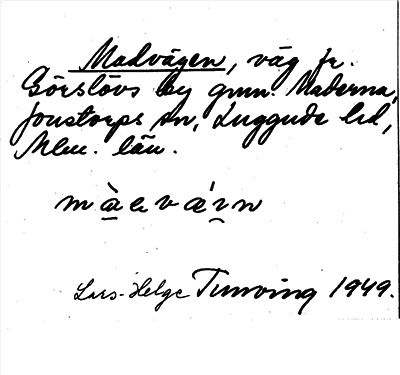 Madvägen, väg fr.
Görslövs by gnm. Maderna,
Jonstorps sn, Luggude hd,
Mlm. län.
m à e v æ ́ ɪ n
Lars-Helge Tunving 1949.